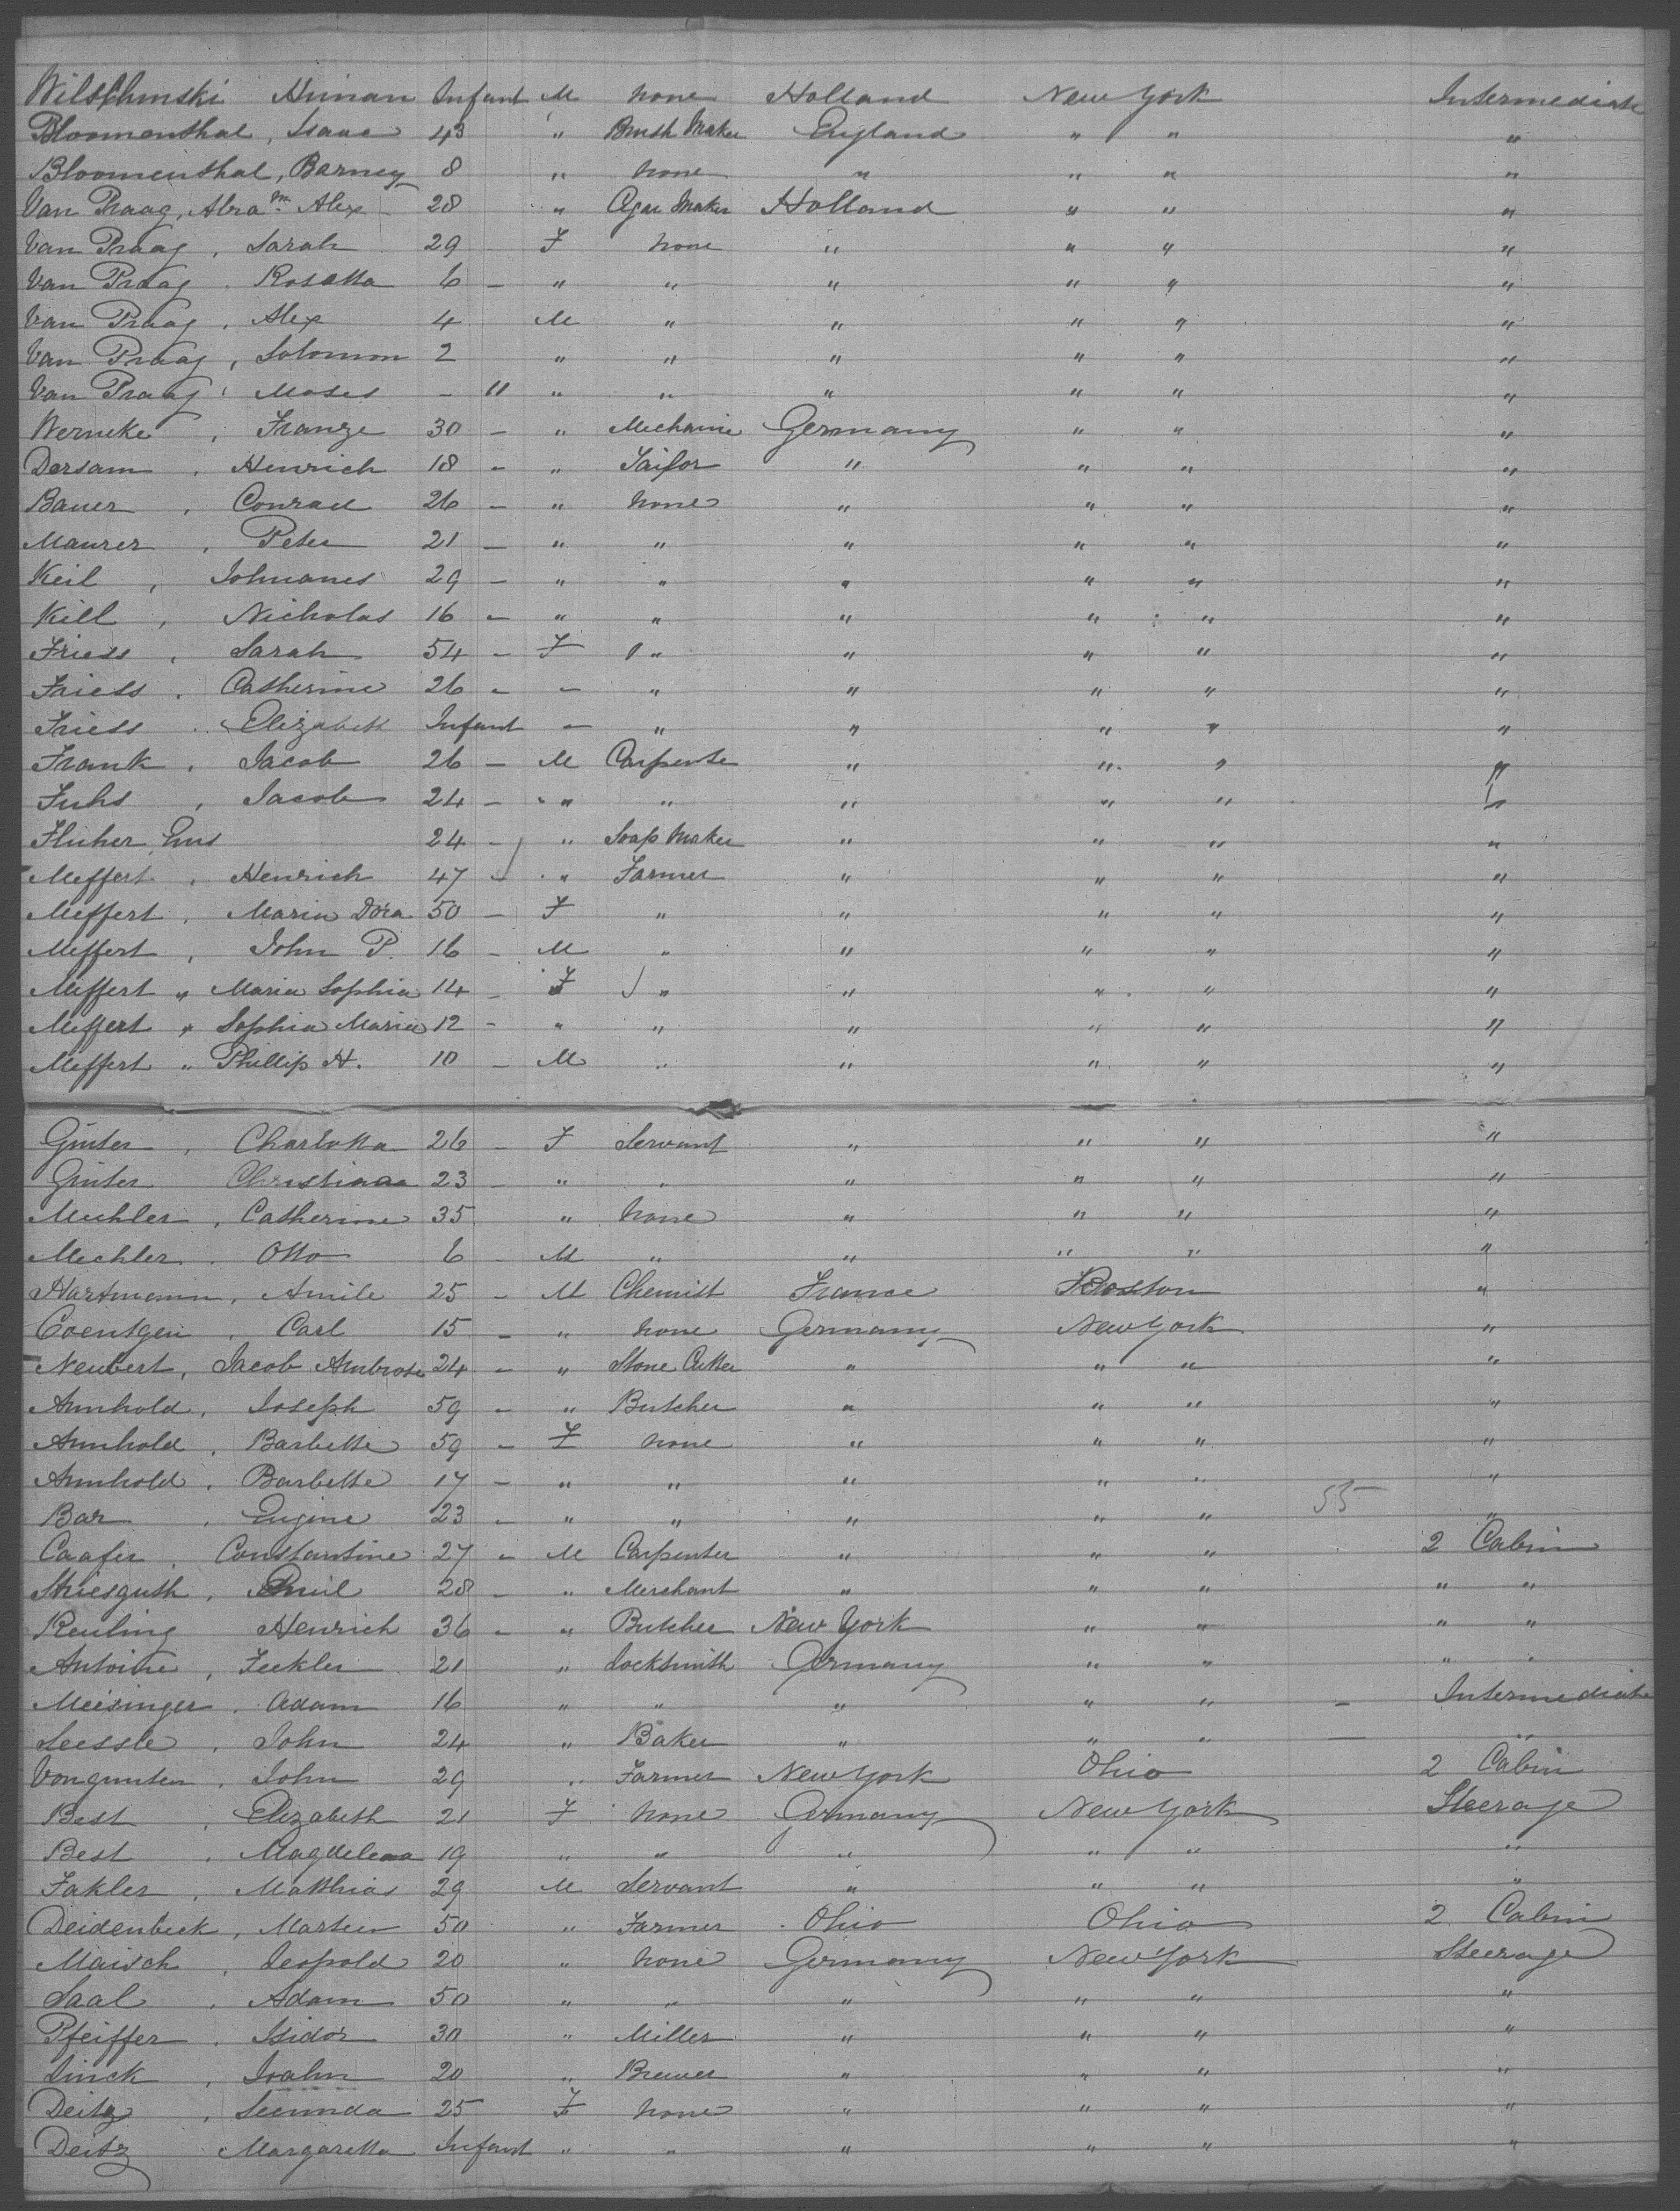 Wilschinski Himan Infant M None Holland New York Intermediate
Bloomenthal, Isaac 43 " Brush Maker England " " "
Bloomenthal, Barney 8 " None " " " "
Van Praag, Abra^m Alex 28 " Cgar Maker Holland " " "
Van Praag, Sarah 29 F None " " " "
Van Praag, Rosetta 6 - " " " " " "
Van Praag, Alex 4 M " " " " "
Van Praag, Solomon 2 " " " " " "
Van Praag, Moses - 11 " " " " " "
Werneke, Franze 30 - " Mechanic Germany " " "
Dersam, Henrich 18 - " Tailor " " " "
Bauer, Conrad 26 - " None " " " "
Maurer, Peter 21 - " " " " " "
Keil, Johnanes 29 - " " " " " "
Kill, Nicholas 16 - " " " " " "
Friess, Sarah 54 - F " " " " "
Friess, Catherine 26 - - " " " " "
Friess Elizabeth Infant - " " " " "
Frank, Jacob 26 - M Carpenter " " " "
Fuhs, Jacob 24 - " " " " " "
24 - " Soap Maker " " " "
Meffert, Henrich 47 - " Farmer " " " "
Meffert, Maria Dora 50 - F " " " " "
Meffert, John P. 16 - M " " " " "
Meffert " Maria Sophia 14 - F " " " " "
Meffert " Sophia Maria 12 - " " " " " "
Meffert " Phillip H. 10 - M " " " " "
Ginter, Charlotta 26 - F Servant " " " "
Ginter Christiana 23 - " " " " " "
Mechler, Catherine 35 " None " " " "
Mechler. Otto 6 - M " " " " "
Hartmann, Amile 25 - M Chemist France Boston "
Coentgen, Carl 15 - " None Germany New York "
Neubert, Jacob Ambrose 24 - " Stone Cutter " " " "
Arnhold, Joseph 59 - " Butcher " " " "
Arnhold, Barbette 59 - F None " " " "
Arnhold, Barbette 17 - " " " " " "
Bar, Eugine 23 - " " " " " 55 "
Caafer, Constantine 27 - M Carpenter " " " 2 Cabin
Emil 28 - " Merchant " " " " "
Reuling Henrich 36 - " Butcher New York " " " "
Antoine, Feckler 21 " Locksmith Germany " " " "
Meisinger, Adam 16 " " " " " - Intermediate
Seessle, John 24 " Baker " " " - "
Vongunten, John 29 " Farmer New York Ohio 2 Cabin
Best, Elizabeth 21 F None Germany New York Steerage
Best, Magdelena 19 " " " " " "
Fakler, Matthias 29 M Servant " " " "
Deidenbeck, Martin 50 " Farmer Ohio Ohio 2 Cabin
Maisch, Leopold 20 " None Germany New York Steerage
Saal, Adam 50 " " " " " "
Pfeiffer, Isidor 30 " Miller " " " "
Linck, 20 " Brewer " " " "
Deitz, Secunda 25 F None " " " "
Deitz Margaretta Infant " " " " " "